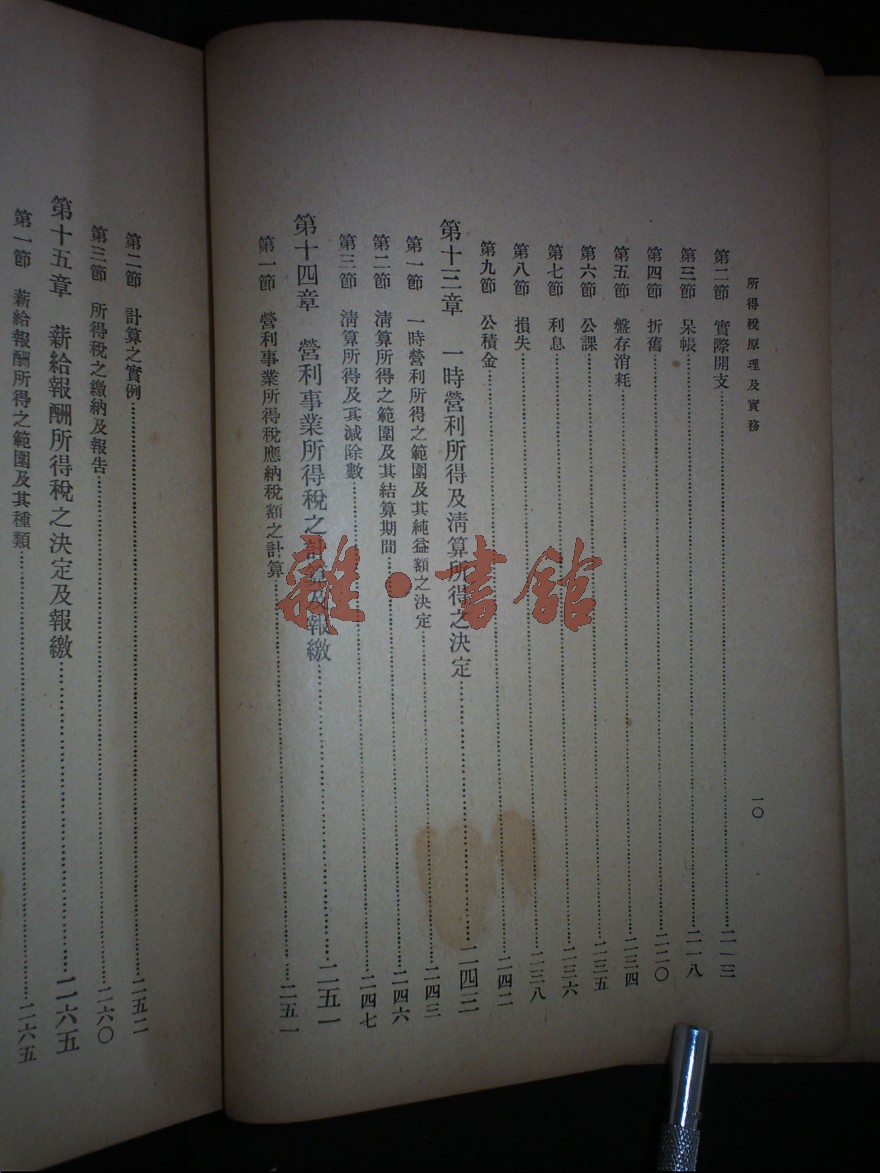 所得稅原理及實務
一〇
第二節 實際開支…………二一三
第三節 呆帳…………二一八
第四節 折舊…………二二〇
第五節 盤存消耗…………二三四
第六節 公課…………二三五
第七節 利息…………二三六
第八節 損失…………二三八
第九節 公積金…………二四二
第十三章 一時營利所得及清算所得之決定…………二四三
第一節 一時營利所得之範圍及其純益額之決定…………二四三
第二節 清算所得之範圍及其結算期間…………二四六
第三節 清算所得及其減除數…………二四七
第十四章 營利事業所得稅之計算及報繳…………二五一
第一節 營利事業所得稅應納稅額之計算…………二五一
第二節 計算之實例…………二五二
第三節 所得稅之繳納及報告…………二六〇
第十五章 薪給報酬所得稅之決定及報繳…………二六五
第一節 薪給報酬所得之範圍及其種類…………二六五
雜·書館